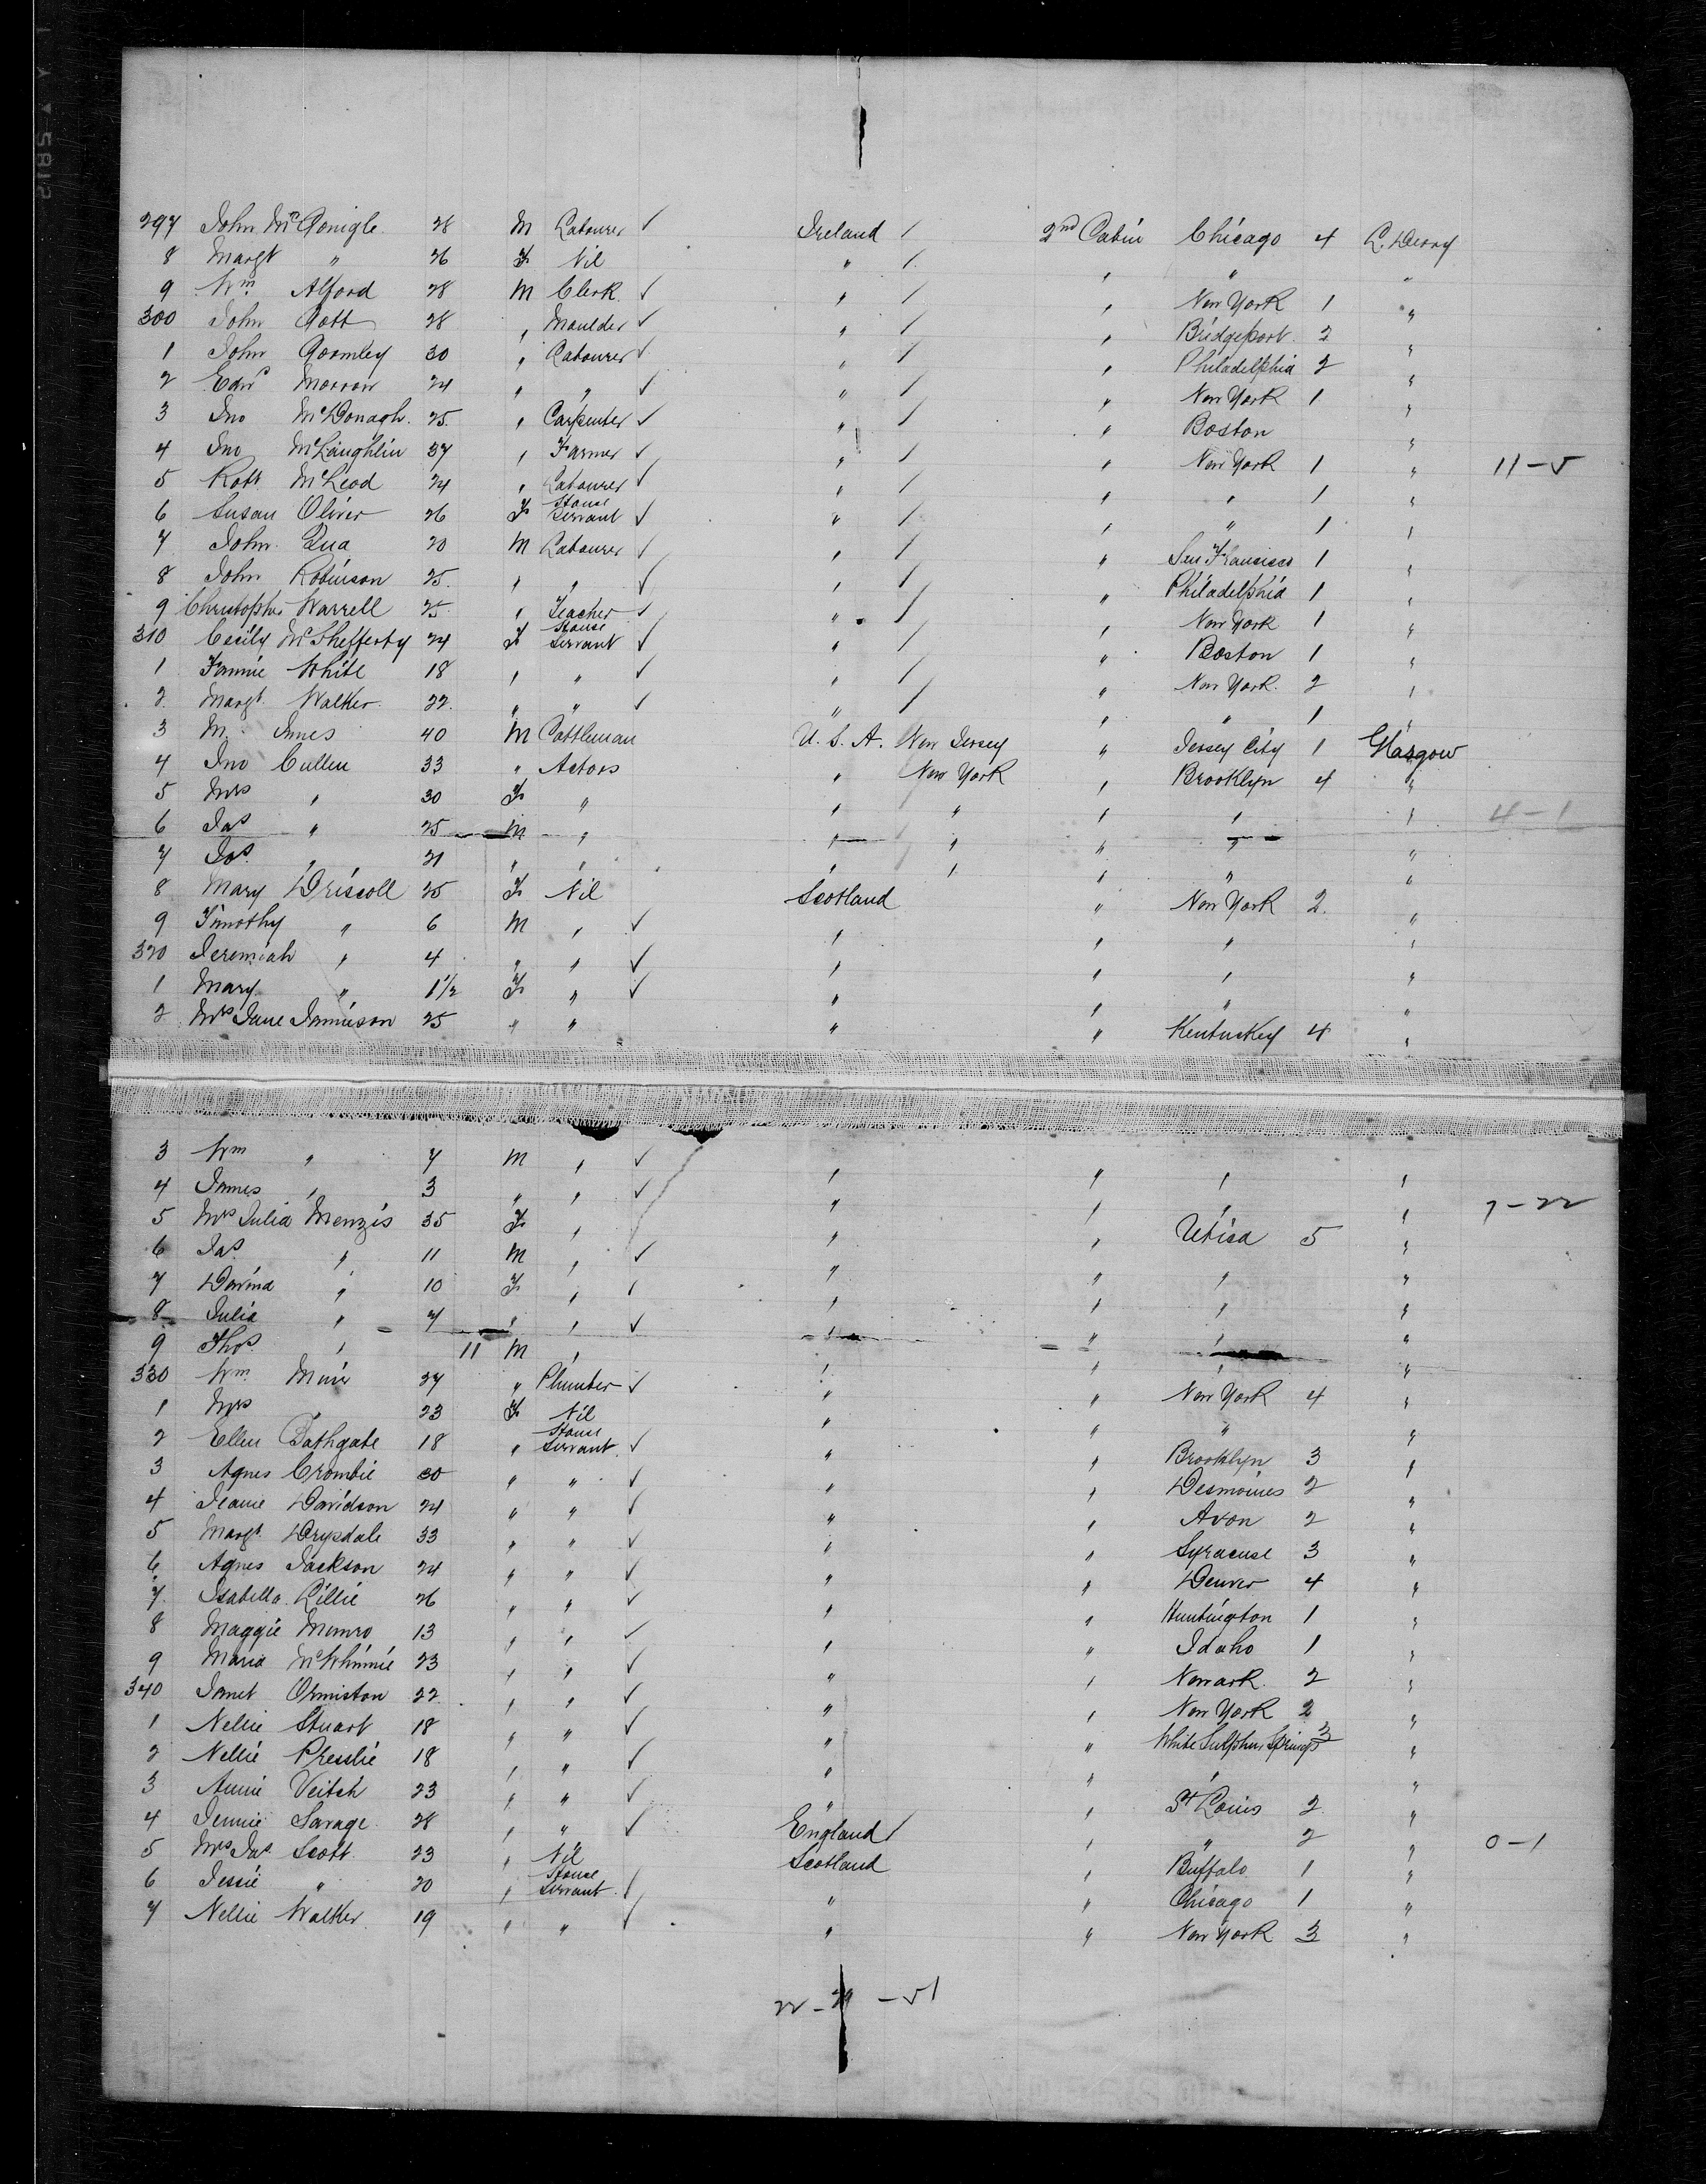 297 John McGonigle 28 M Labourer ✓ Ireland / 2nd Cabin Chicago 4 L. Derry
8 Margt " 26 F Nil " / " " "
9 Wm Alford 28 M Clerk ✓ " / " New York 1 "
300 John Gott 28 " Moulder ✓ " / " Bridgeport 2 "
1 John Gormley 30 " Labourer ✓ " / " Philadelphia 2 "
2 Edwd Morrow 24 " " ✓ " / " New York 1 "
3 Jno McDonagh 25 " Carpenter ✓ " / " Boston "
4 Jno McLaughlin 37 " Farmer ✓ " / " New York 1 " 11-5
5 Robt McLeod 24 " Labourer ✓ " / " " 1 "
6 Susan Oliver 26 F House Servant ✓ " / " " 1 "
7 John Qua 20 M Labourer ✓ " / " San Francisco 1 "
8 John Robinson 25 " " ✓ " / " Philadelphia 1 "
9 Christopher Warrell 25 " Teacher ✓ " / " New York 1 "
310 Cecily McShefferty 24 F House Servant ✓ " / " Boston 1 "
1 Fannie White 18 " " ✓ " / " New York 2 "
2 Margt Walker 22 " " ✓ " / " " 1 "
3 M. Innes 40 M Cattleman U.S.A. New Jersey " Jersey City 1 Glasgow
4 Jno Cullen 33 " Actors " New York " Brooklyn 4 "
5 Mrs " 30 F " " " " " "
6 Jas " 25 M " " " " " " 4-1
7 Jos " 21 " " " " " " "
8 Mary Driscoll 25 F Nil Scotland " New York 2 "
9 Timothy " 6 M " ✓ " " " "
320 Jeremiah " 4 " " ✓ " " " "
1 Mary " 1½ F " ✓ " " " "
2 Mrs Jane Jamieson 25 " " " " Kentuckey 4 "
3 Wm " 7 M " ✓ " " " "
4 James " 3 " " ✓ " " " "
5 Mrs Julia Menzis 35 F " " " Utica 5 " 7-22
6 Jas " 11 M " ✓ " " " "
7 Davina " 10 F " / " " " "
8 Julia " 7 " " ✓ " " " "
9 Thos " 11 M " " " " "
330 Wm Muir 27 " Plumber ✓ " " New York 4 "
1 Mrs " 23 F Nil " " " "
2 Ellen Bathgate 18 " House Servant ✓ " " Brooklyn 3 "
3 Agnes Crombie 30 " " ✓ " " Desmoines 2 "
4 Jeanie Davidson 24 " " ✓ " " Avon 2 "
5 Margt Drysdale 33 " " ✓ " " Syracuse 3 "
6 Agnes Jackson 24 " " ✓ " " Denver 4 "
7 Isabella Lillie 26 " " ✓ " " Huntington 1 "
8 Maggie Munro 13 " " ✓ " " Idaho 1 "
9 Maria McWhinnie 23 " " ✓ " " Newark 2 "
340 Janet Ormiston 22 " " ✓ " " New York 2 "
1 Nellie Stuart 18 " " ✓ " " White Sulphur Springs 3 "
2 Nellie Presslie 18 " " ✓ " " " "
3 Annie Veitch 23 " " ✓ " " St Louis 2 "
4 Jennie Savage 28 " " ✓ England / " " 2 " 0-1
5 Mrs Jas Scott 23 " Nil Scotland " Buffalo 1 "
6 Jessie " 20 " House Servant ✓ " " Chicago 1 "
7 Nellie Walker 19 " " ✓ " " New York 3 "
22-29-51